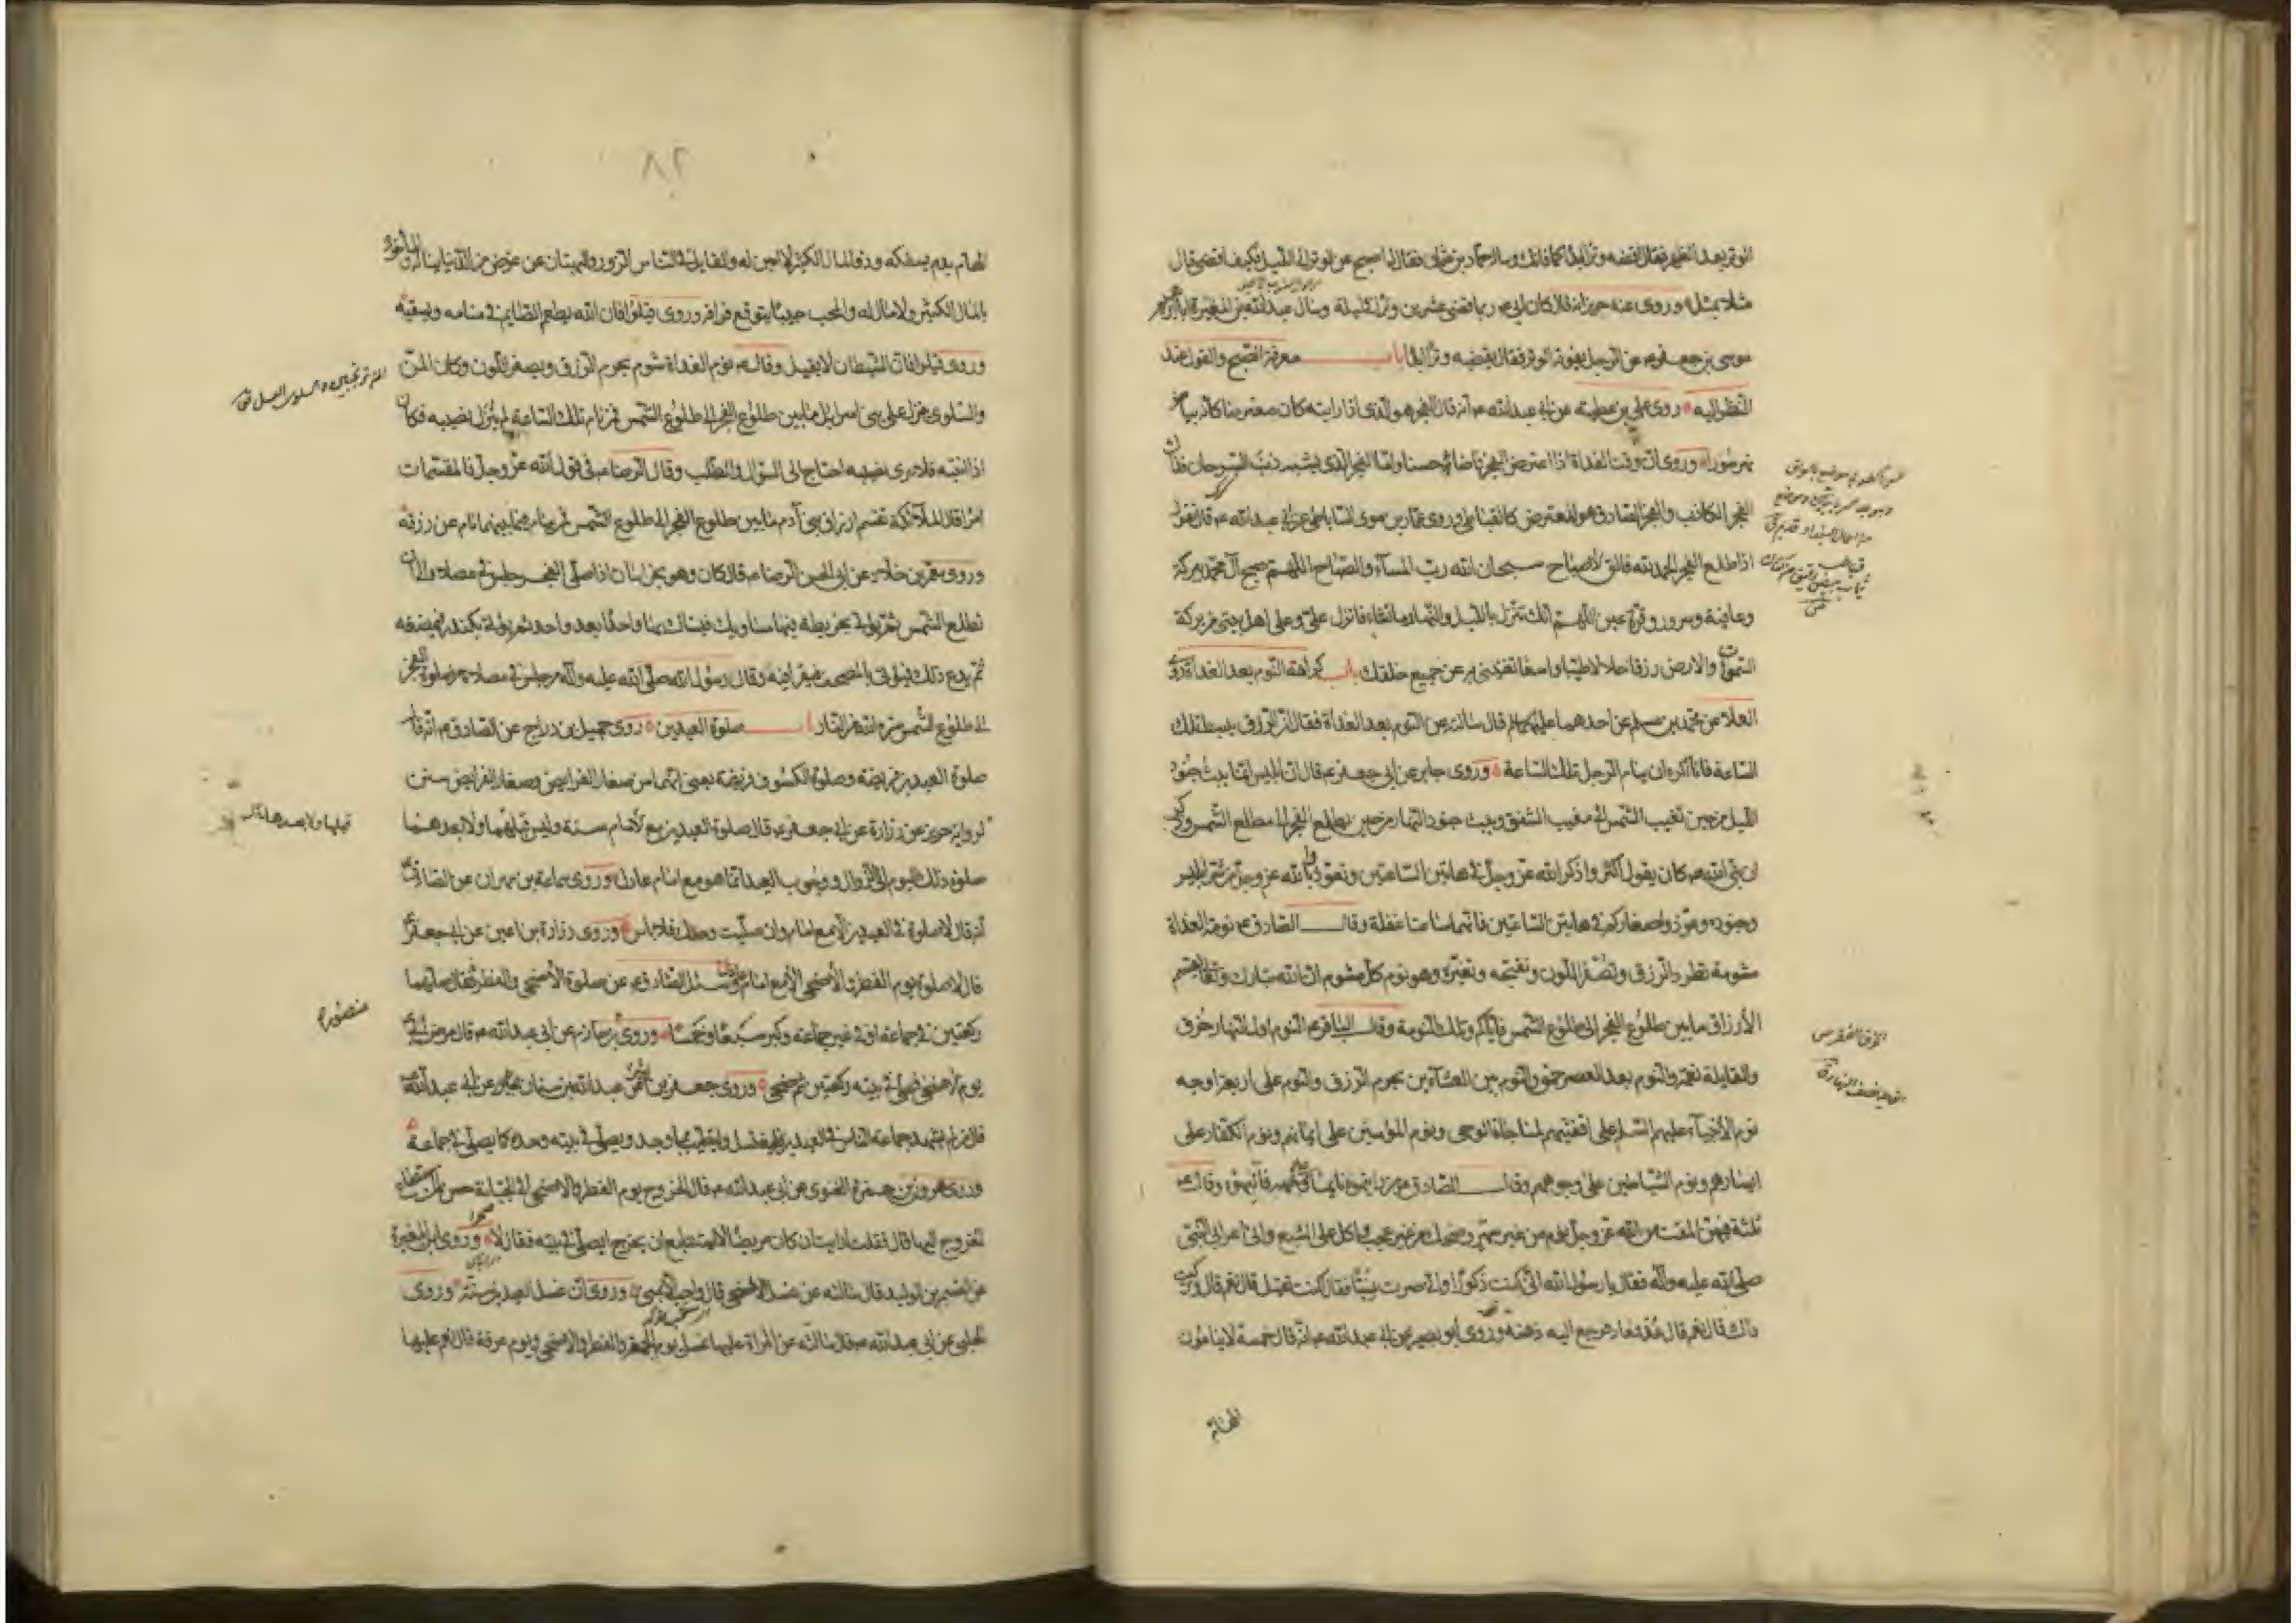 الوتر بعد الظهر فقال اقضه وترا ابدا كما فاتك وسأله حماد بن عثمان فقال له اصبح عن الوتر الى الليل فكيف اقضى قال
مثلا بمثل وروى عنه حريز انه قال كان ابى ع ربما قضى عشرين وترا فى ليلة وسأل عبد الله بن المغيرة ابا ابرهيم
موسى بن جعفر ع عن الرجل يفوته الوتر فقال يقضيه وترا ابدا باب معرفة الصبح والقول عند
النظر اليه روى على بن عطية عن ابى عبد الله ع انه قال الفجر هو الذى اذا رايته كان معترضا كانه بياض
نهر سورا وروى ان وقت الغداة اذا اعترض الفجر فاضاء حسنا واما الفجر الذى يشبه ذنب السرحان فذاك
الفجر الكاذب والفجر الصادق هو المعترض كالقباطى وروى عمار بن موسى الساباطى عن ابى عبد الله ع قال تقول
اذا طلع الفجر الحمد لله فالق الاصباح سبحان الله رب المساء والصباح اللهم صبح آل محمد ببركة
وعافية وسرور وقرة عين اللهم انك تنزل بالليل والنهار ما تشاء فانزل على وعلى اهل بيتى من بركة
السموات والارض رزقا حلالا طيبا واسعا تغنينى به عن جميع خلقك باب كراهة النوم بعد الغداة روى
العلاء عن محمد بن مسلم عن احدهما عليهما السلم قال سالته عن النوم بعد الغداة فقال ان الرزق يبسط تلك
الساعة فانا اكره ان ينام الرجل تلك الساعة وروى جابر عن ابى جعفر ع قال ان ابليس انما يبث جنود
الليل من حين تغيب الشمس الى مغيب الشفق ويبث جنود النهار من حين يطلع الفجر الى مطلع الشمس وذكر
ان نبى الله ص كان يقول اكثروا ذكر الله عز وجل فى هاتين الساعتين وتعوذوا بالله عز وجل من شر ابليس
وجنوده وعوذوا صغاركم فى هاتين الساعتين فانهما ساعتا غفلة وقال الصادق ع نومة الغداة
مشومة تطرد الرزق وتصفر اللون وتقبحه وتغيره وهو نوم كل مشوم ان الله تبارك وتعالى قسم
الأرزاق ما بين طلوع الفجر الى طلوع الشمس فاياكم وتلك النومة وقال الباقر ع النوم اول النهار خرق
والقايلة نعمة والنوم بعد العصر حمق والنوم بين العشائين يحرم الرزق والنوم على اربعة اوجه
نوم الأنبياء عليهم السلم على اقفيتهم لمناجاة الوحى ونوم المؤمنين على ايمانهم ونوم الكفار على
ايسارهم ونوم الشياطين على وجوههم وقال الصادق ع من رايتموه نايما على وجهه فانبهوه وقال ع
ثلثة فيهن المقت من الله عز وجل نوم من غير سهر وضحك من غير عجب واكل على الشبع واتى اعرابى النبى
صلى الله عليه وآله فقال يا رسول الله انى كنت ذكورا وانى صرت نسيا فقال كنت تقيل قال نعم قال وتركت
ذاك قال نعم قال عد فعاد فرجع اليه ذهنه وروى ابو بصير عن ابى عبد الله ع انه قال خمسة لا ينامون
الهام
٨٢
الهام بدم يسفكه وذو المال الكثير لا امين له والقايل فى الناس الزور والبهتان عن عرض من الدنيا يناله والمأخوذ
بالمال الكثير ولا مال له والمحب حبيبا يتوقع فراقه وروى قيلوا فان الله يطعم الصايم فى منامه ويسقيه
وروى قيلوا فان الشيطان لا يقيل وقال ع نوم الغداة شوم يحرم الرزق ويصفر اللون وكان المن
والسلوى ينزل على بنى اسرائيل ما بين طلوع الفجر الى طلوع الشمس فمن نام تلك الساعة لم ينزل نصيبه فكان
اذا انتبه فلا يرى نصيبه احتاج الى السؤال والطلب وقال الرضا ع فى قول الله عز وجل فالمقسمات
امرا قال الملائكة تقسم ارزاق بنى آدم ما بين طلوع الفجر الى طلوع الشمس فمن ينام فيما بينهما نام عن رزقه
وروى معمر بن خلاد عن ابى الحسن الرضا ع قال كان وهو بخراسان اذا صلى الفجر جلس فى مصلاه الى ان
تطلع الشمس ثم يؤتى بخريطة فيها مساويك فيستاك بها واحدا بعد واحد ثم يؤتى بكندر فيمضغه
ثم يدع ذلك فيؤتى بالمصحف فيقرا فيه وقال رسول الله صلى الله عليه وآله من جلس فى مصلاه من صلوة الفجر
الى طلوع الشمس ستره الله من النار باب صلوة العيدين روى جميل بن دراج عن الصادق ع انه قال
صلوة العيدين فريضة وصلوة الكسوف فريضة يعنى انهما من صغار الفرايض وصغار الفرايض سنن
لرواية حريز عن زرارة عن ابى جعفر ع قال صلوة العيدين مع الامام سنة وليس قبلهما ولا بعدهما
صلوة ذلك اليوم الى الزوال ووجوب العيد انما هو مع امام عادل وروى سماعة بن مهران عن الصادق ع
انه قال لا صلوة فى العيدين الا مع امام وان صليت وحدك فلا باس وروى زرارة بن اعين عن ابى جعفر ع
قال لا صلوة يوم الفطر والأضحى الا مع امام عادل وسئل الصادق ع عن صلوة الأضحى والفطر فقال صلهما
ركعتين فى جماعة او فى غير جماعة وكبر سبعا وخمسا وروى بن حازم عن ابى عبد الله ع قال مرض ابى ع
يوم الاضحى فصلى فى بيته ركعتين ثم ضحى وروى جعفر بن عن عبد الله بن سنان عن ابى عبد الله ع
قال من لم يشهد جماعة الناس فى العيدين فليغتسل وليتطيب بما وجد ويصلى فى بيته وحده كما يصلى فى جماعة
وروى هرون بن حمزة الغنوى عن ابى عبد الله ع قال الخروج يوم الفطر والاضحى الى الجبانة حسن لمن استطاع
الخروج اليها قال فقلت ارايت ان كان مريضا لا يستطيع ان يخرج ايصلى فى بيته فقال لا وروى ابن المغيرة
عن القسم بن الوليد قال سالته عن غسل الاضحى قال واجب الا بمنى وروى ان غسل العيدين سنة وروى
الحلبى عن ابى عبد الله ع قال سالته عن المراة عليها غسل يوم الجمعة والفطر والاضحى ويوم عرفة قال نعم عليها
قبلها ولا بعدها
منصور